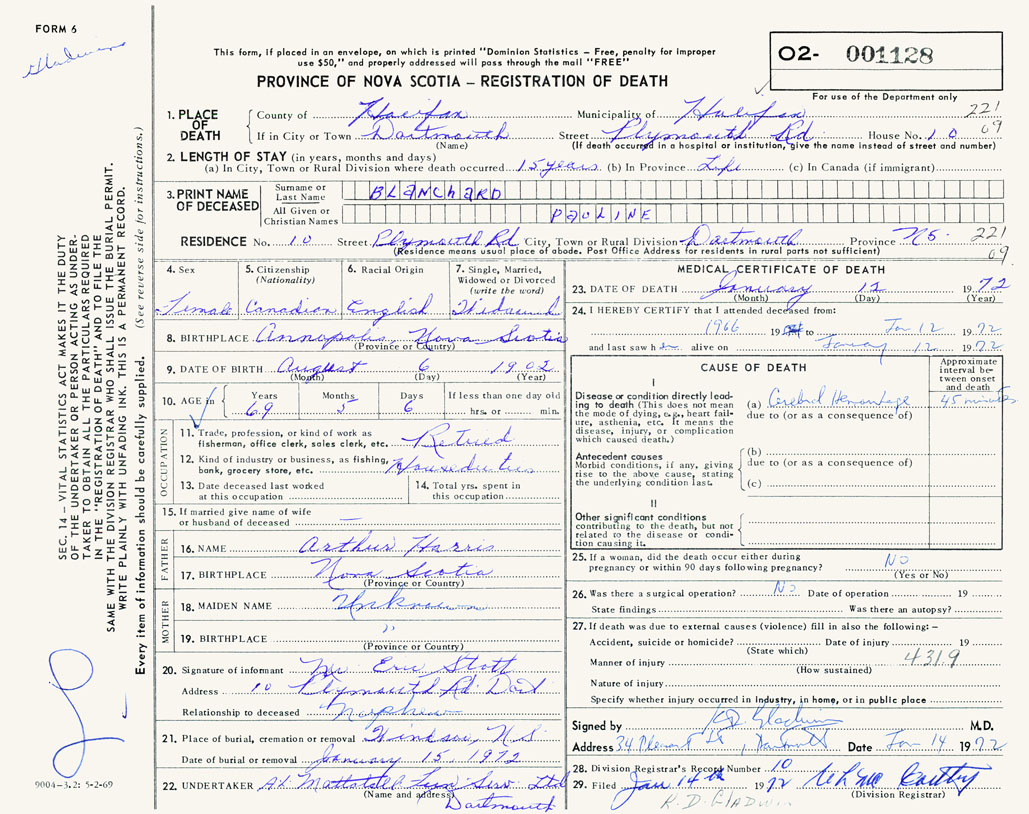 FORM 6
Gladwin
This form, if placed in an envelope, on which is printed "Dominion Statistics – Free, penalty for improper
use $50," and properly addressed will pass through the mail "FREE"
PROVINCE OF NOVA SCOTIA – REGISTRATION OF DEATH
02- 001128
For use of the Department only
1. PLACE OF DEATH
County of Halifax Municipality of Halifax 221
If in City or Town Dartmouth Street Plymouth Rd House No. 10 09
(Name) (If death occurred in a hospital or institution, give the name instead of street and number)
2. LENGTH OF STAY (in years, months and days)
(a) In City, Town or Rural Division where death occurred 15 years (b) In Province Life (c) In Canada (if immigrant)
3. PRINT NAME OF DECEASED
Surname or Last Name BLANCHARD
All Given or Christian Names PAULINE
RESIDENCE No. 10 Street Plymouth Rd City, Town or Rural Division Dartmouth Province NS. 221
(Residence means usual place of abode. Post Office Address for residents in rural parts not sufficient) 09.
4. Sex
Female
5. Citizenship
(Nationality)
Canadian
6. Racial Origin
English
7. Single, Married,
Widowed or Divorced
(write the word)
Widowed
8. BIRTHPLACE Annapolis Nova Scotia
(Province or Country)
9. DATE OF BIRTH August 6 1902
(Month) (Day) (Year)
10. AGE in Years Months Days If less than one day old
69 5 6 hrs. or min.
OCCUPATION
11. Trade, profession, or kind of work as
fisherman, office clerk, sales clerk, etc. Retired
12. Kind of industry or business, as fishing,
bank, grocery store, etc. Houseduties
13. Date deceased last worked
at this occupation
14. Total yrs. spent in
this occupation
15. If married give name of wife
or husband of deceased —
FATHER
16. NAME Arthur Harris
17. BIRTHPLACE Nova Scotia
(Province or Country)
MOTHER
18. MAIDEN NAME Unknown
19. BIRTHPLACE "
(Province or Country)
20. Signature of informant Mr Eric Stott
Address 10 Plymouth Rd. Dart
Relationship to deceased Nephew
21. Place of burial, cremation or removal Windsor, N.S.
Date of burial or removal January 15, 1972
22. UNDERTAKER Serv Ltd
(Name and address) Dartmouth
MEDICAL CERTIFICATE OF DEATH
23. DATE OF DEATH January 12 1972
(Month) (Day) (Year)
24. I HEREBY CERTIFY that I attended deceased from:
1966 19 to Jan 12 1972
and last saw h er alive on January 12 1972
CAUSE OF DEATH
Approximate
interval be-
tween onset
and death
I
Disease or condition directly lead-
ing to death (This does not mean
the mode of dying, e.g., heart fail-
ure, asthenia, etc. It means the
disease, injury, or complication
which caused death.)
(a) Cerebral Hemorrhage 45 minutes
due to (or as a consequence of)
Antecedent causes
Morbid conditions, if any, giving
rise to the above cause, stating
the underlying condition last.
(b)
due to (or as a consequence of)
(c)
II
Other significant conditions
contributing to the death, but not
related to the disease or condi-
tion causing it.
25. If a woman, did the death occur either during
pregnancy or within 90 days following pregnancy? NO
(Yes or No)
26. Was there a surgical operation? No Date of operation 19
State findings Was there an autopsy?
27. If death was due to external causes (violence) fill in also the following: –
Accident, suicide or homicide? Date of injury 19
(State which)
Manner of injury 4319
(How sustained)
Nature of injury
Specify whether injury occurred in Industry, in home, or in public place
Signed by KD Gladwin M.D.
Address 34 Pleasant St, Dartmouth Date Jan 14 1972
28. Division Registrar's Record Number 10
29. Filed Jan 14th 1972
(Division Registrar)
K.D. GLADWIN
SEC. 14 – VITAL STATISTICS ACT MAKES IT THE DUTY
OF THE UNDERTAKER OR PERSON ACTING AS UNDER-
TAKER TO OBTAIN ALL THE PARTICULARS REQUIRED
IN THE "REGISTRATION OF DEATH" AND TO FILE THE
SAME WITH THE DIVISION REGISTRAR WHO SHALL ISSUE THE BURIAL PERMIT.
WRITE PLAINLY WITH UNFADING INK. THIS IS A PERMANENT RECORD.
Every item of information should be carefully supplied. (See reverse side for instructions.)
9004-3.2: 5-2-69